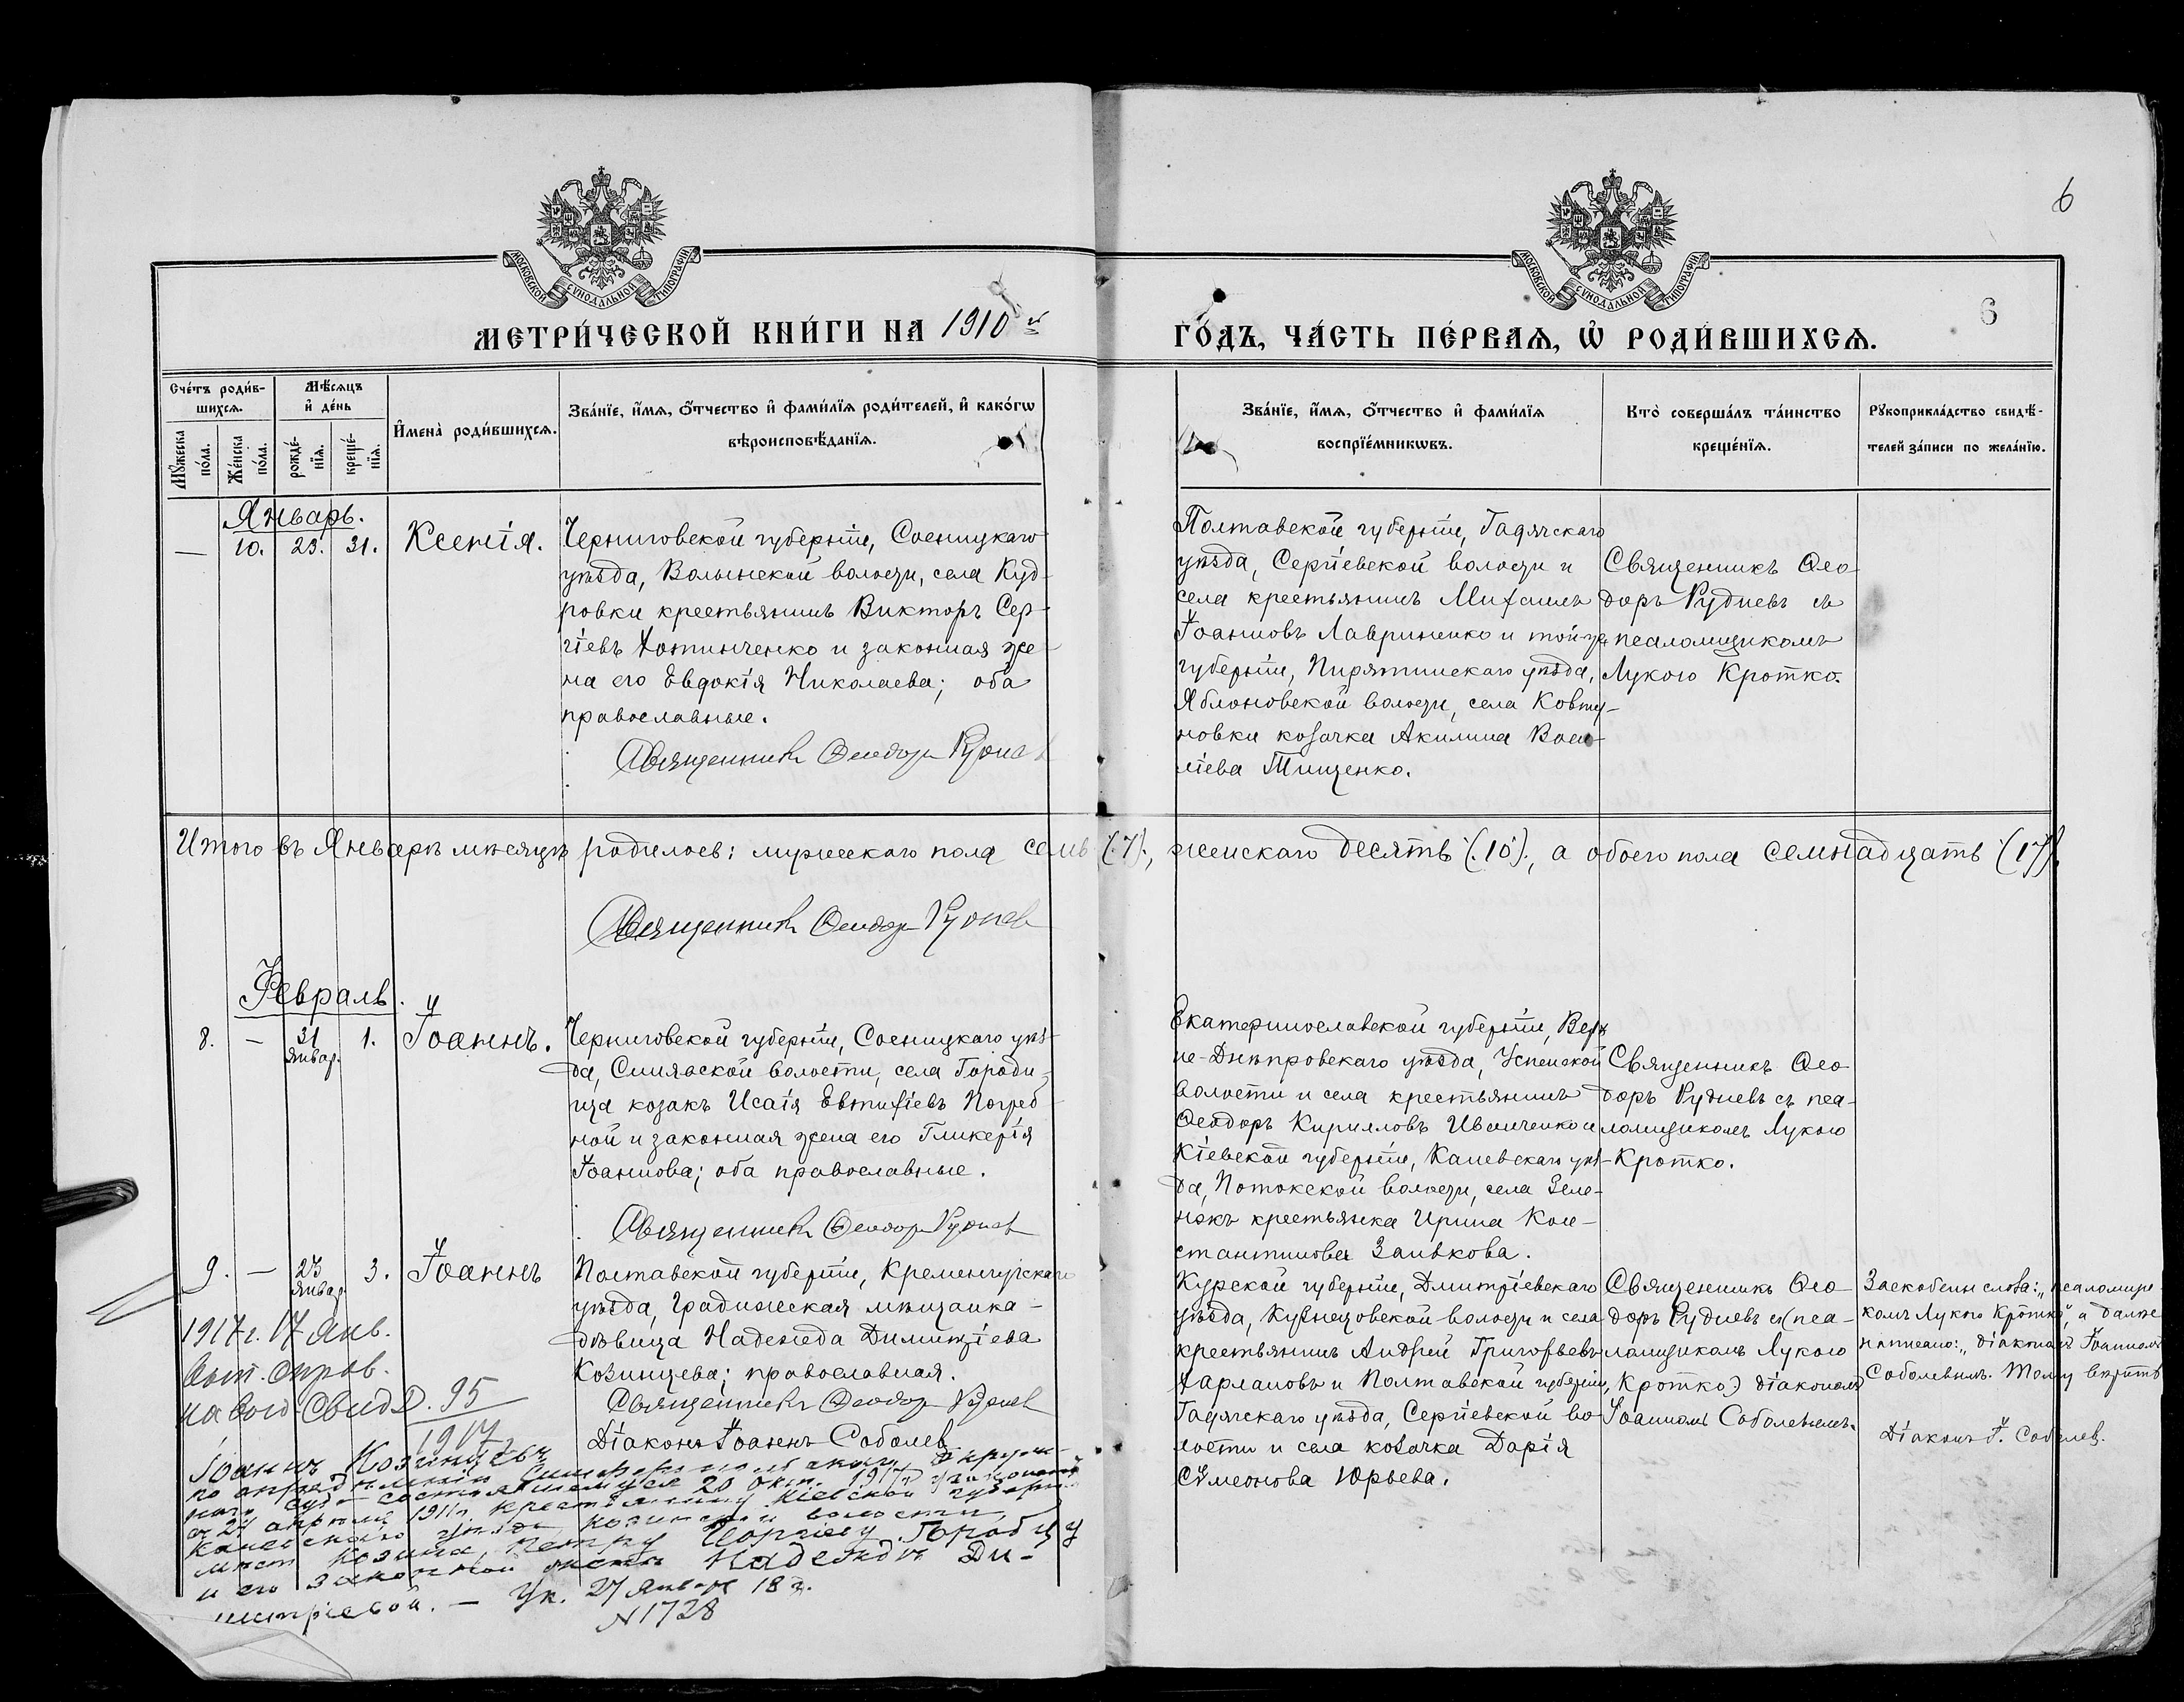 6
МОСКОВСКОЙ СѴНОДАЛЬНОЙ ТИПОГРАФІИ
МОСКОВСКОЙ СѴНОДАЛЬНОЙ ТИПОГРАФІИ
6
МЕТРИ́ЧЕСКОЙ КНИ́ГИ НА 1910 й
ГО́ДЪ, ЧА́СТЬ ПЕ́РВАѦ, Ѡ҆ РОДИ́ВШИХСѦ.
Сче́тъ роди́в-
шихсѧ.
Мѣ́сѧцъ
и҆ де́нь
Мꙋ́жеска
по́ла.
Же́нска
по́ла.
рожде́-
нїѧ.
креще́-
нїѧ.
И҆мена̀ роди́вшихсѧ.
Зва́нїе, и҆́мѧ, ѻ҆́тчество и҆ фами́лїѧ роди́телей, и҆ како́гѡ
вѣроисповѣ́данїѧ.
Зва́нїе, и҆́мѧ, ѻ҆́тчество и҆ фами́лїѧ
воспрїе́мникѡвъ.
Кто̀ соверша́лъ та́инство
креще́нїѧ.
Рꙋкоприкла́дство свидѣ́-
телей за́писи по жела́нїю.
Январь.
— 10. 23. 31. Ксенія.
Черниговской губерніи, Сосницкаго
уѣзда, Волынской волости, села Куд-
ровки крестьянинъ Викторъ Сер-
гіевъ Хотинченко и законная же-
на его Евдокія Николаева; оба
православные.
Священникъ Ѳеодоръ Рудневъ
Полтавской губерніи, Гадячскаго
уѣзда, Сергіевской волости и
села крестьянинъ Михаилъ
Іоанновъ Лавриненко и той-же
губерніи, Пирятинскаго уѣзда,
Яблоновской волости, села Ковту-
новки козачка Акилина Васи-
ліева Тищенко.
Священникъ Ѳео-
доръ Рудневъ съ
псаломщикомъ
Лукою Кротко.
Итого въ Январѣ мѣсяцѣ родилось: мужескаго пола семь (7), женскаго десять (10), а обоего пола семнадцать (17).
Священникъ Ѳеодоръ Рудневъ
Февраль.
8. — 31 Январ. 1. Іоаннъ.
Черниговской губерніи, Сосницкаго уѣз-
да, Синявской волости, села Городи-
ща козакъ Исаія Евтихіевъ Погреб-
ной и законная жена его Гликерія
Іоаннова; оба православные.
Священникъ Ѳеодоръ Рудневъ
Екатеринославской губерніи, Верх-
не-Днѣпровскаго уѣзда, Успенской
волости и села крестьянинъ
Ѳеодоръ Кирилловъ Иванченко и
Кіевской губерніи, Каневскаго уѣз-
да, Потокской волости, села Зеле-
нокъ крестьянка Ирина Кон-
стантинова Заивкова.
Священникъ Ѳео-
доръ Рудневъ съ пса-
ломщикомъ Лукою
Кротко.
9. — 27 Январ. 3. Іоаннъ
Полтавской губерніи, Кременчугскаго
уѣзда, Градижская мѣщанка-
дѣвица Надежда Димитріева
Козинцева; православная.
Священникъ Ѳеодоръ Рудневъ
Діаконъ Іоаннъ Соболев
Курской губерніи, Дмитріевскаго
уѣзда, Кузнецовской волости и села
крестьянинъ Андрей Григорьевъ
Харлановъ и Полтавской губерніи,
Гадячскаго уѣзда, Сергіевской во-
лости и села козачка Дарія
Сѵмеонова Юрьева.
Священникъ Ѳео-
доръ Рудневъ съ (пса-
ломщикомъ Лукою
Кротко) діакономъ
Іоанномъ Соболевымъ.
Заскоблены слова: „псаломщи-
комъ Лукою Кротко“, а далѣе
написано: „діакономъ Іоанномъ
Соболевымъ. Тому вѣрить
Діаконъ І. Соболев.
1917 г. 17 Янв.
выт. справ.
на вой. Свид. 95
1917
Іоаннъ Козинцевъ
по опредѣленію Симферопольскаго Окруж-
наго суда состоявшемуся 20 окт. 1917 г. узаконенъ
27 апрѣля 1911 г. крестьянину Кіевской губерн.
Каневскаго уѣзда, Козинской волости,
мѣст. Козина, Петру Горобцу
и его законной женѣ Надеждѣ Ди-
митріевой. — Ук. 27 Января 18 г.
№ 1728